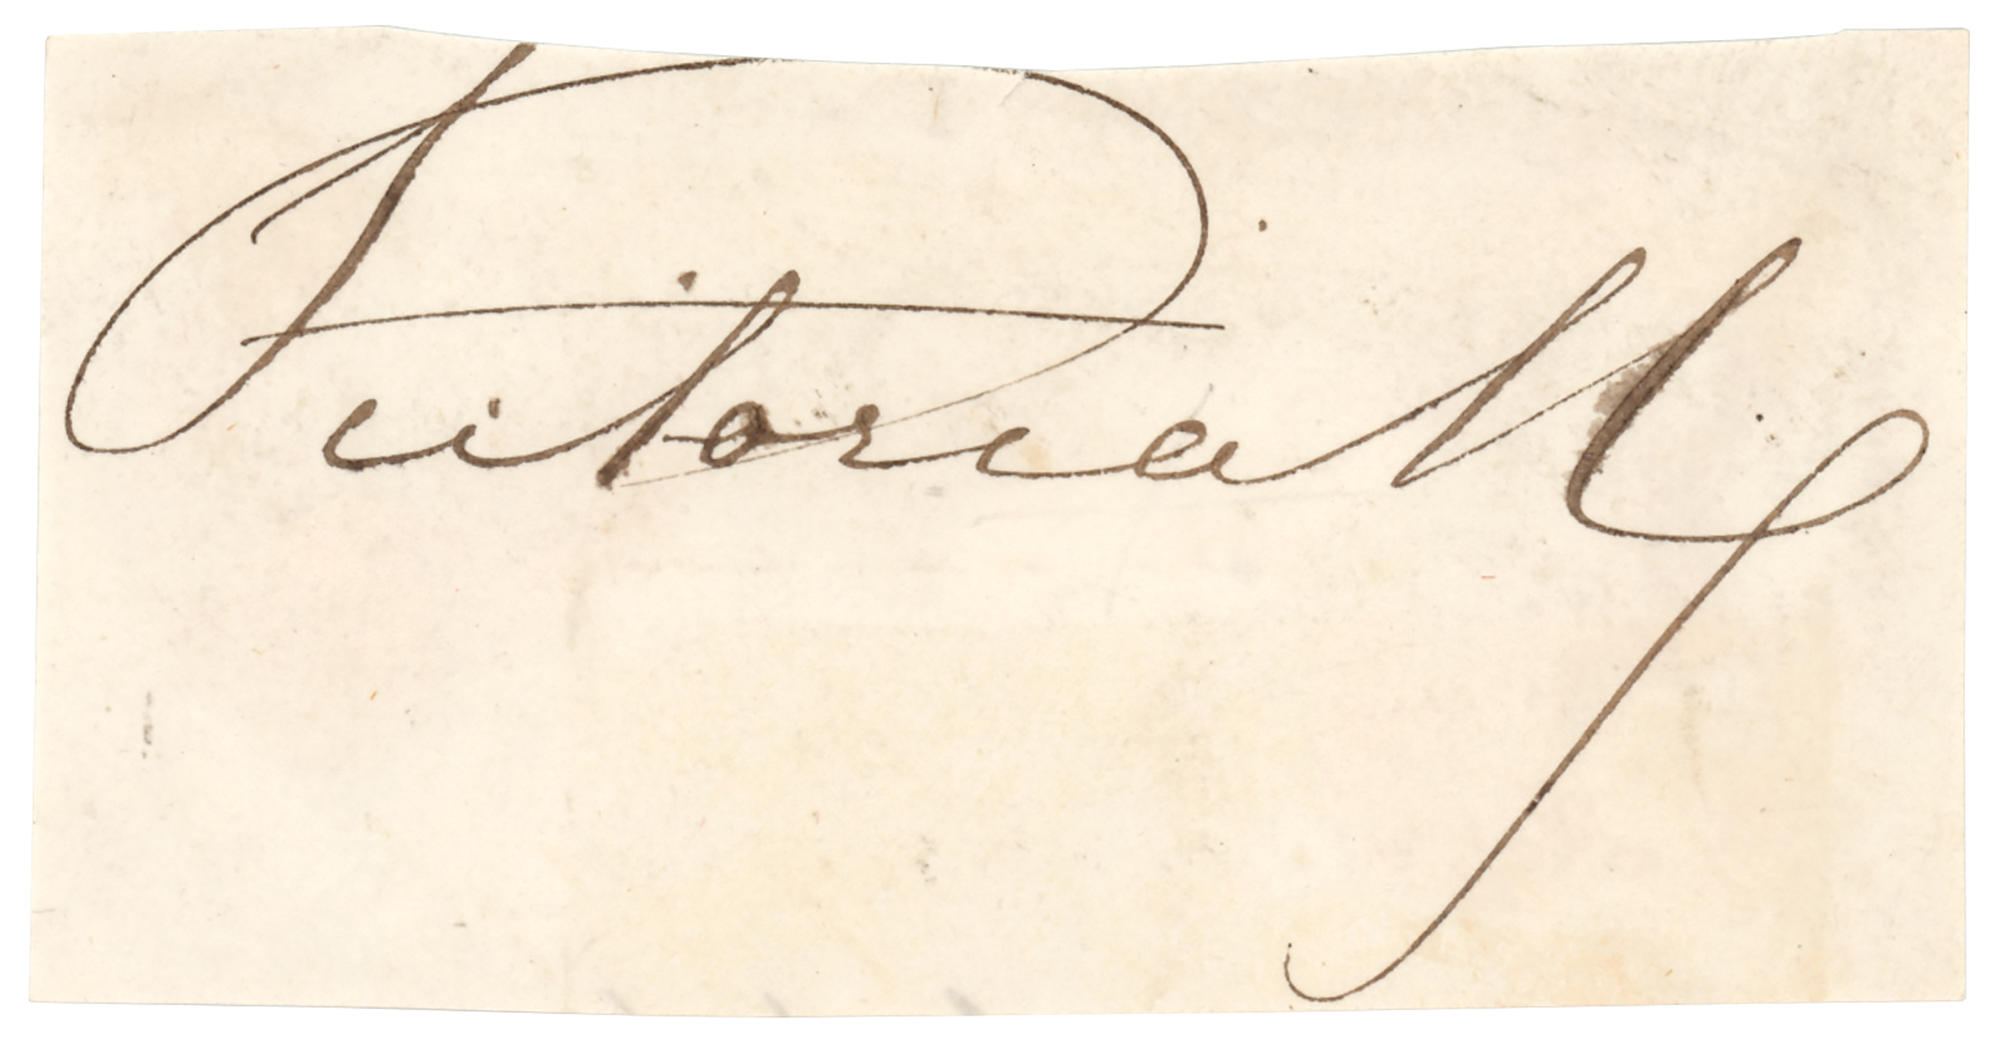 Victoria M